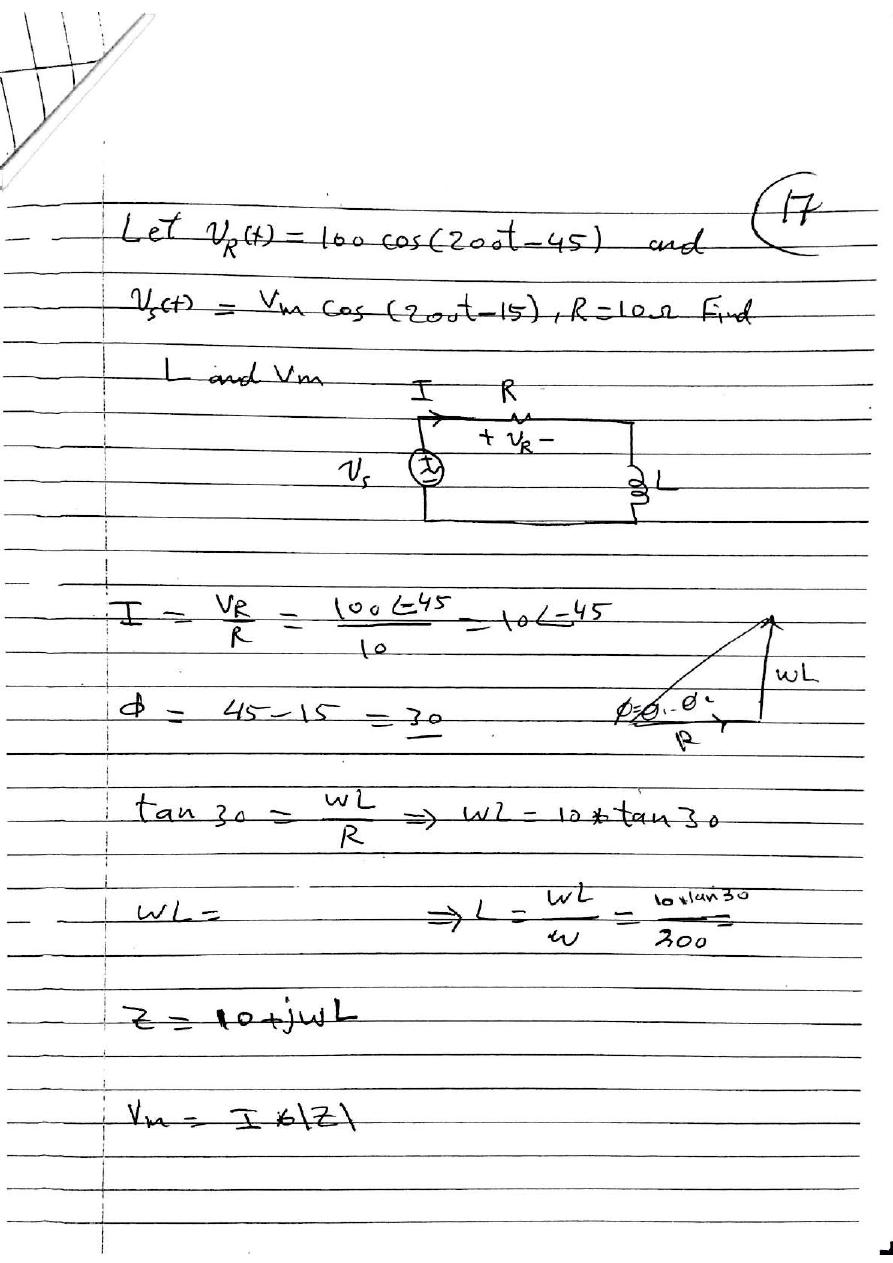 17
Let V_R(t) = 100 cos(200t-45) and
V_s(t) = Vm cos (200t-15), R=10Ω Find
L and Vm
I R
+ V_R -
V_s L
I = V_R/R = 100∠-45/10 = 10∠-45
wL
ϕ = 45-15 = 30
R
tan 30 = WL/R ⇒ WL = 10*tan 30
WL = ⇒ L = WL/w = 10*tan30/200
Z = 10+jwL
Vm = I*|Z|